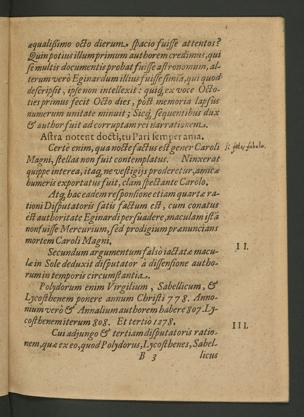 æqualissimo octo dierum spacio fuisse attentos?
Quin potius illum primum authorem credimus, qui
se multis documentis probat fuisse astronomum, al-
terum verò Eginardum illius fuisse simiã, qui quod
descripsit, ipse non intellexit: quiq, ex voce Octo-
ties primus fecit Octo dies, pòst memoria lapsus
numerum unitate minuit; Sicq, sequentibus dux
& author fuit ad corruptam rei narrationem.
Astra notent docti, tu Pari semper ama.
Certè enim, qua nocte factus est gener Caroli
Magni, stellas non fuit contemplatus. Ninxerat
quippe interea, itaq, ne vestigijs proderetur, amicæ
humeris exportatus fuit, clam spectante Carolo.
Atq, hac eadem responsione etiam quartæ ra-
tioni Disputatoris satis factum est, cum conatus
est authoritate Eginardi persuadere, maculam istã
non fuisse Mercurium, sed prodigium prænuncians
mortem Caroli Magni,
Secundum argumentum falsò iactatæ macu-
læ in Sole deduxit disputator à dissensione autho-
rum in temporis circumstantia.
Polydorum enim Virgilium, Sabellicum, &
Lycosthenem ponere annum Christi 778. Anno-
nium verò & Annalium authorem habere 807. Ly-
costhenem iterum 808. Et tertiò 1278.
Cui adjungo & tertiam disputatoris ratio-
nem, quæ ex eo, quod Polydorus, Lycosthenes, Sabel-
B 3 licus
fabula.
II.
III.